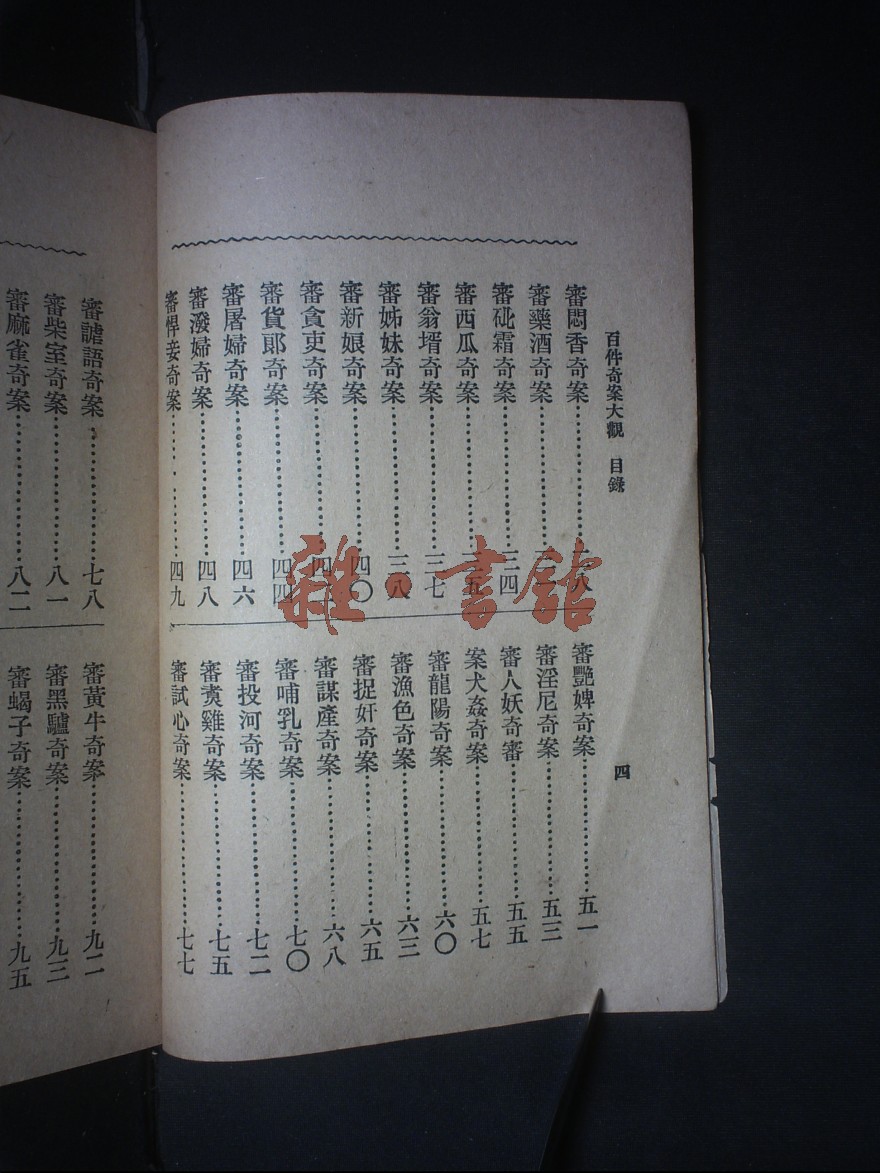 百件奇案大觀 目錄
四
審悶香奇案
審藥酒奇案
審砒霜奇案……三四
審西瓜奇案……三五
審翁壻奇案……三七
審姊妹奇案……三八
審新娘奇案……四〇
審貪吏奇案……四二
審貨郎奇案……四四
審屠婦奇案……四六
審潑婦奇案……四八
審悍妾奇案……四九
審艷婢奇案……五一
審淫尼奇案……五三
審人妖奇審……五五
案犬姦奇案……五七
審龍陽奇案……六〇
審漁色奇案……六三
審捉奸奇案……六五
審謀產奇案……六八
審哺乳奇案……七〇
審投河奇案……七二
審雞奇案……七五
審試心奇案……七七
審謔語奇案……七八
審柴室奇案……八一
審麻雀奇案……八二
審黃牛奇案……九二
審黑驢奇案……九三
審蝎子奇案……九五
雜·書館